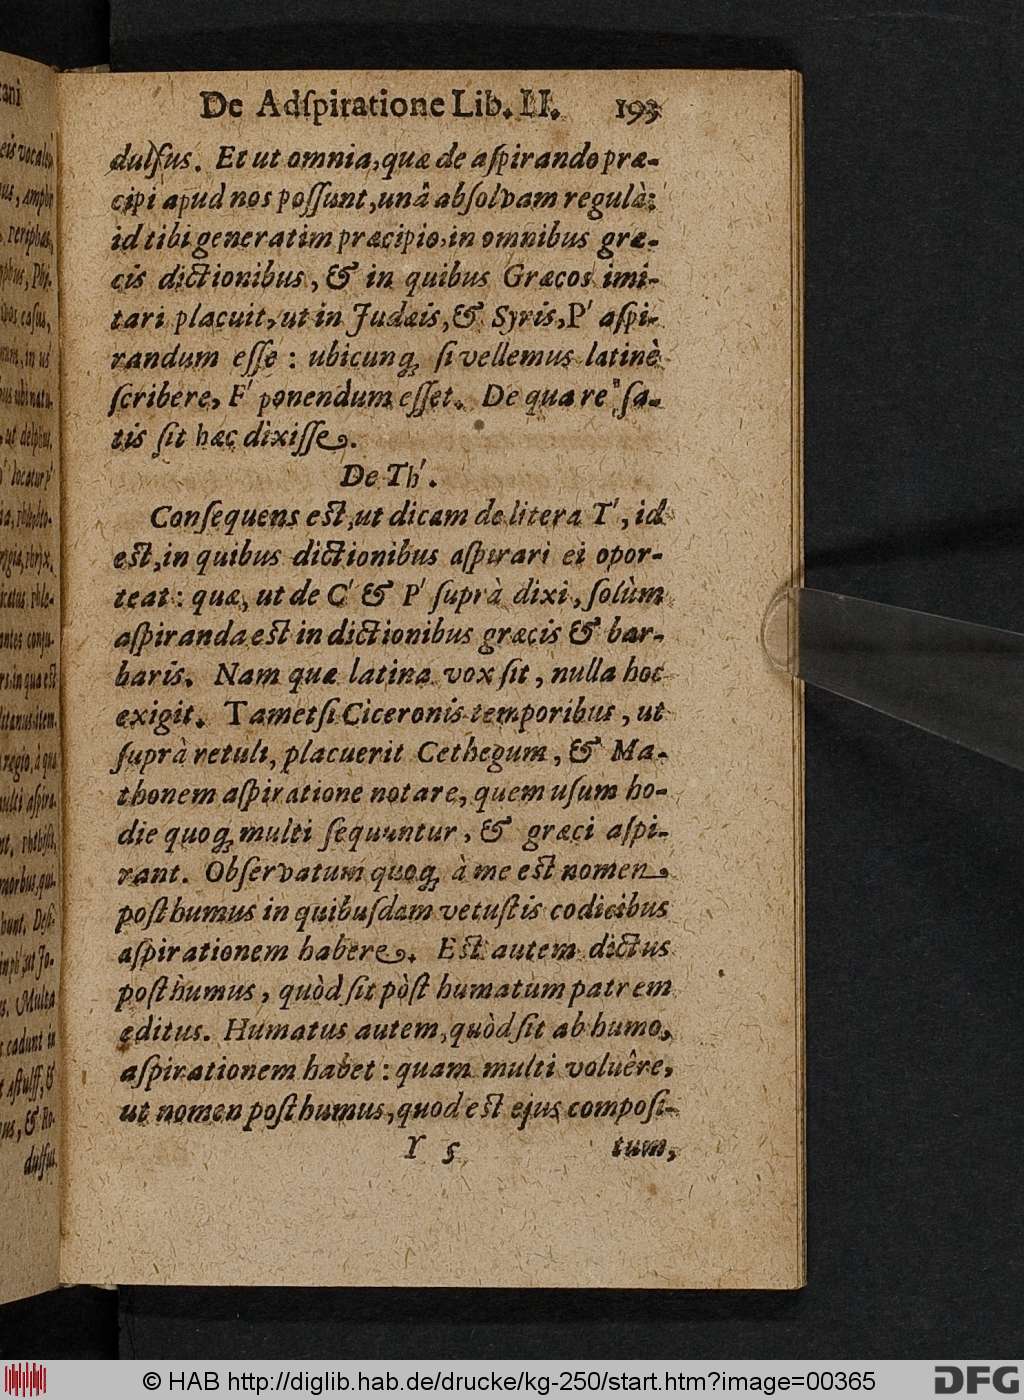 De Adſpiratione Lib. II. 193
dulſus. Et ut omnia, quæ de aſpirando præ-
cipi apud nos poſſunt, unâ abſolvam regulà:
id tibi generatim præcipio, in omnibus græ-
cis dictionibus, & in quibus Græcos imi-
tari placuit, ut in Judæis, & Syris, P' aſpi-
randum eſſe : ubicunq; ſi vellemus latinè
ſcribere, F' ponendum eſſet. De qua re ſa-
tis ſit hæc dixiſſe.
De Th'.
Conſequens eſt, ut dicam de litera T', id
eſt, in quibus dictionibus aſpirari ei opor-
teat : quæ, ut de C' & P' ſuprà dixi, ſolùm
aſpiranda eſt in dictionibus græcis & bar-
baris. Nam quæ latina vox ſit, nulla hoc
exigit. Tametſi Ciceronis temporibus, ut
ſuprà retuli, placuerit Cethegum, & Ma-
thonem aſpiratione notare, quem uſum ho-
die quoq; multi ſequuntur, & græci aſpi-
rant. Obſervatum quoq; à me eſt nomen
poſthumus in quibuſdam vetuſtis codicibus
aſpirationem habere. Eſt autem dictus
poſthumus, quòd ſit pòſt humatum patrem
editus. Humatus autem, quòd ſit ab humo,
aſpirationem habet : quam multi voluêre,
ut nomen poſthumus, quod eſt ejus compoſi-
Y 5 tum,
© HAB http://diglib.hab.de/drucke/kg-250/start.htm?image=00365
DFG